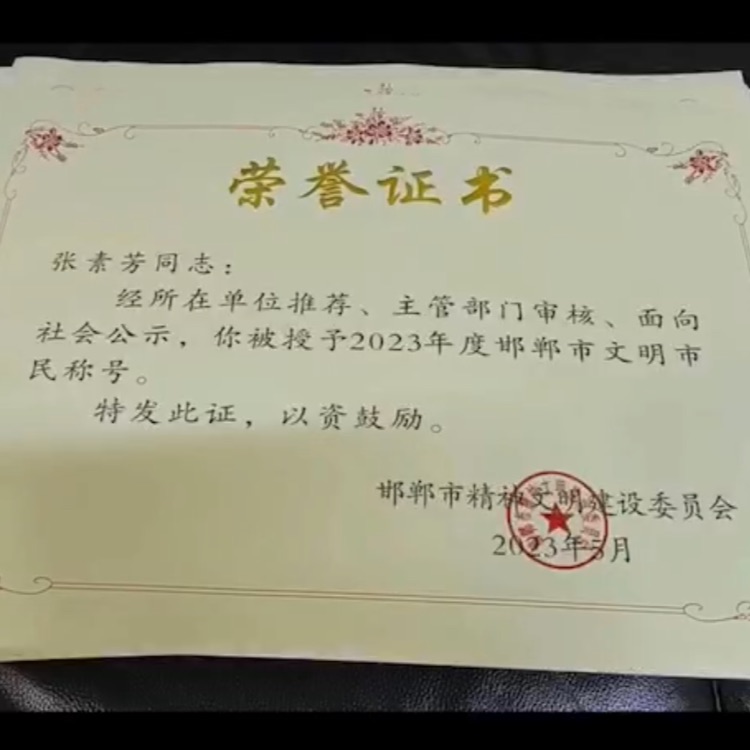 荣誉证书
张素芳同志：
经所在单位推荐、主管部门审核、面向
社会公示，你被授予2023年度邯郸市文明市
民称号。
特发此证，以资鼓励。
邯郸市精神文明建设委员会
2023年5月